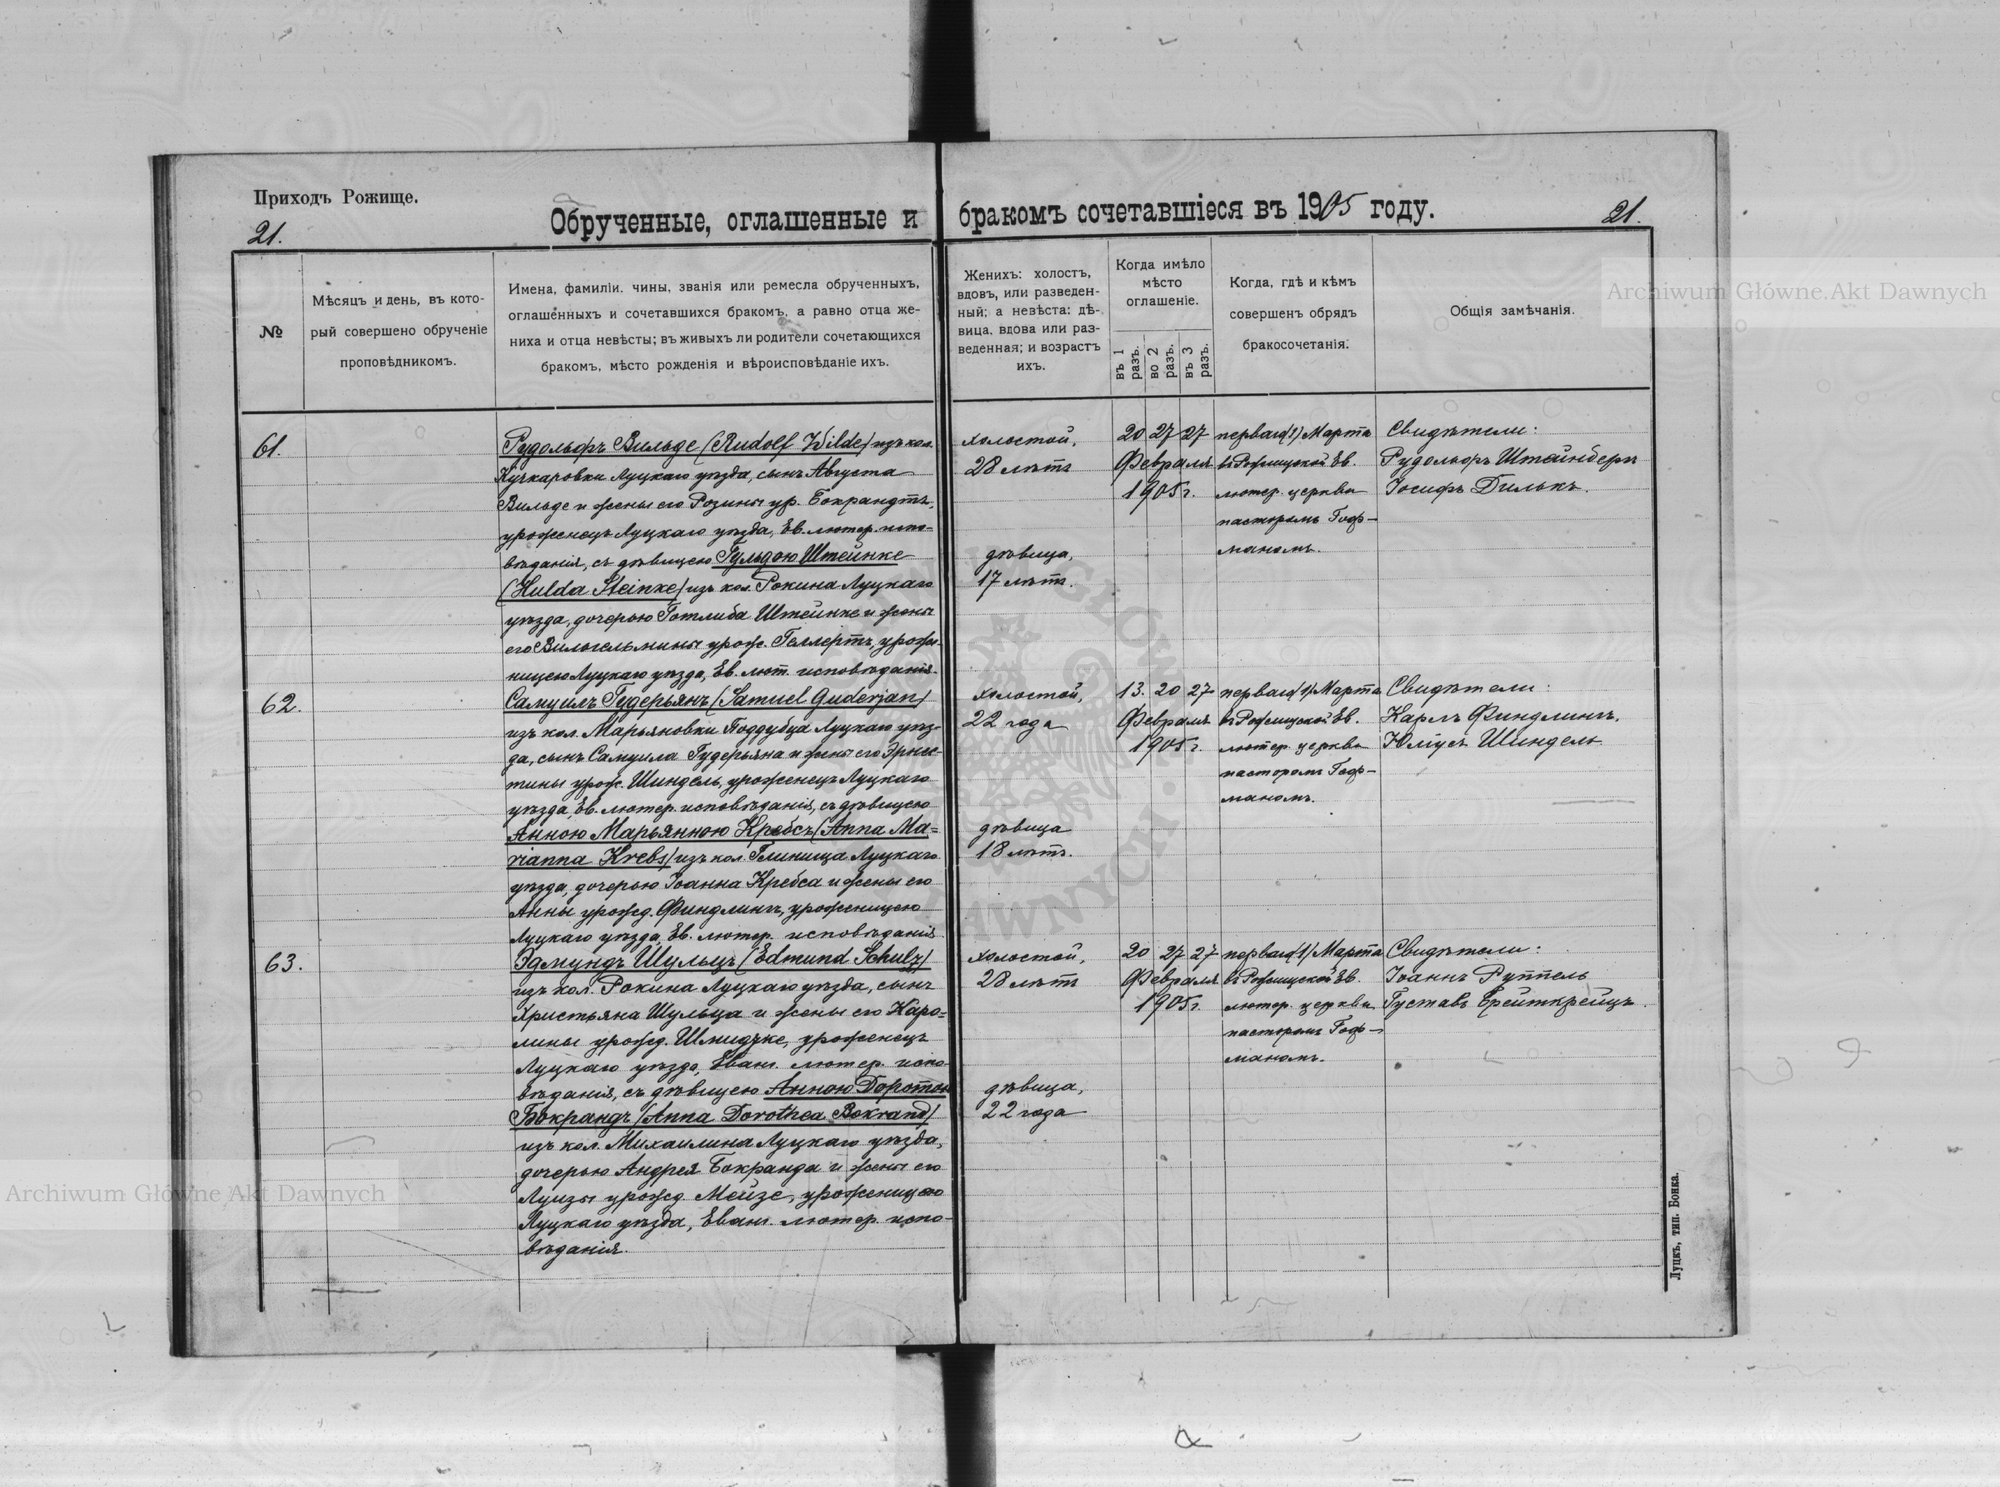 Приходъ Рожище.
21.
Обрученные, оглашенные и бракомъ сочетавшіеся въ 1905 году.
21.
№
Мѣсяцъ и день, въ кото-
рый совершено обрученіе
проповѣдникомъ.
Имена, фамиліи, чины, званія или ремесла обрученныхъ,
оглашенныхъ и сочетавшихся бракомъ, а равно отца же-
ниха и отца невѣсты; въ живыхъ ли родители сочетающихся
бракомъ, мѣсто рожденія и вѣроисповѣданіе ихъ.
Женихъ: холостъ,
вдовъ, или разведен-
ный; а невѣста: дѣ-
вица, вдова или раз-
веденная; и возрастъ
ихъ.
Когда имѣло
мѣсто
оглашеніе.
въ 1 разъ.
во 2 разъ.
въ 3 разъ.
Когда, гдѣ и кѣмъ
совершенъ обрядъ
бракосочетанія.
Общія замѣчанія.
61.
Рудольфъ Вильде (Rudolf Wilde) изъ кол.
Кучкаровки Луцкаго уѣзда, сынъ Августа
Вильде и жены его Розины ур. Бокрандтъ,
уроженецъ Луцкаго уѣзда, Ев. лютер. испо-
вѣданія, съ дѣвицею Гульдою Штейнке
(Hulda Steinke) изъ кол. Рокина Луцкаго
уѣзда, дочерью Готлиба Штейнке и жены
его Вильгельмины урож. Геллертъ, уроже-
ницею Луцкаго уѣзда, Ев. лют. исповѣданія.
холостой,
28 лѣтъ
дѣвица,
17 лѣтъ.
20 27 27
Февраля
1905 г.
перваго (1) Марта
въ Рожищской Ев.
лютер. церкви
пасторомъ Гоф-
маномъ.
Свидѣтели:
Рудольфъ Штейнбергъ
Іосифъ Дилькъ.
62.
Самуилъ Гудерьянъ (Samuel Guderjan)
изъ кол. Марьяновки Поддубца Луцкаго уѣз-
да, сынъ Самуила Гудерьяна и жены его Эрнес-
тины урож. Шиндель, уроженецъ Луцкаго
уѣзда, Ев. лютер. исповѣданія, съ дѣвицею
Анною Марьянною Кребсъ (Anna Ma-
rianna Krebs) изъ кол. Глинища Луцкаго
уѣзда, дочерью Іоанна Кребса и жены его
Анны урожд. Финдлингъ, уроженицею
Луцкаго уѣзда, Ев. лютер. исповѣданія.
холостой,
22 года
дѣвица
18 лѣтъ.
13. 20 27
Февраля
1905 г.
перваго (1) Марта
въ Рожищской Ев.
лютер. церкви
пасторомъ Гоф-
маномъ.
Свидѣтели:
Карлъ Финдлингъ.
Юліусъ Шиндель
63.
Эдмундъ Шульцъ (Edmund Schulz)
изъ кол. Рокина Луцкаго уѣзда, сынъ
Христьяна Шульца и жены его Каро-
лины урожд. Шмидтке, уроженецъ
Луцкаго уѣзда, Еванг. лютер. испо-
вѣданія, съ дѣвицею Анною Доротею
Бокрандъ (Anna Dorothea Bokrand)
изъ кол. Михаилина Луцкаго уѣзда,
дочерью Андрея Бокранда и жены его
Луизы урожд. Мейзе, уроженицею
Луцкаго уѣзда, Еванг. лютер. испо-
вѣданія.
холостой,
28 лѣтъ
дѣвица,
22 года
20 27 27
Февраля
1905 г.
перваго (1) Марта
въ Рожищской Ев.
лютер. церкви
пасторомъ Гоф-
маномъ.
Свидѣтели:
Іоаннъ Руппель
Густавъ Брейткрейцъ.
Луцкъ, тип. Бонка.
Archiwum Główne Akt Dawnych
Archiwum Główne Akt Dawnych